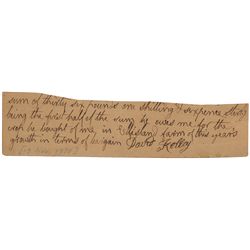 sum of thirty six pounds one shilling & sixpence Sterling
being the first half of the sum he owes me for the
corn he bought of me in farm of this years
growth in terms of bargain David Kelloy